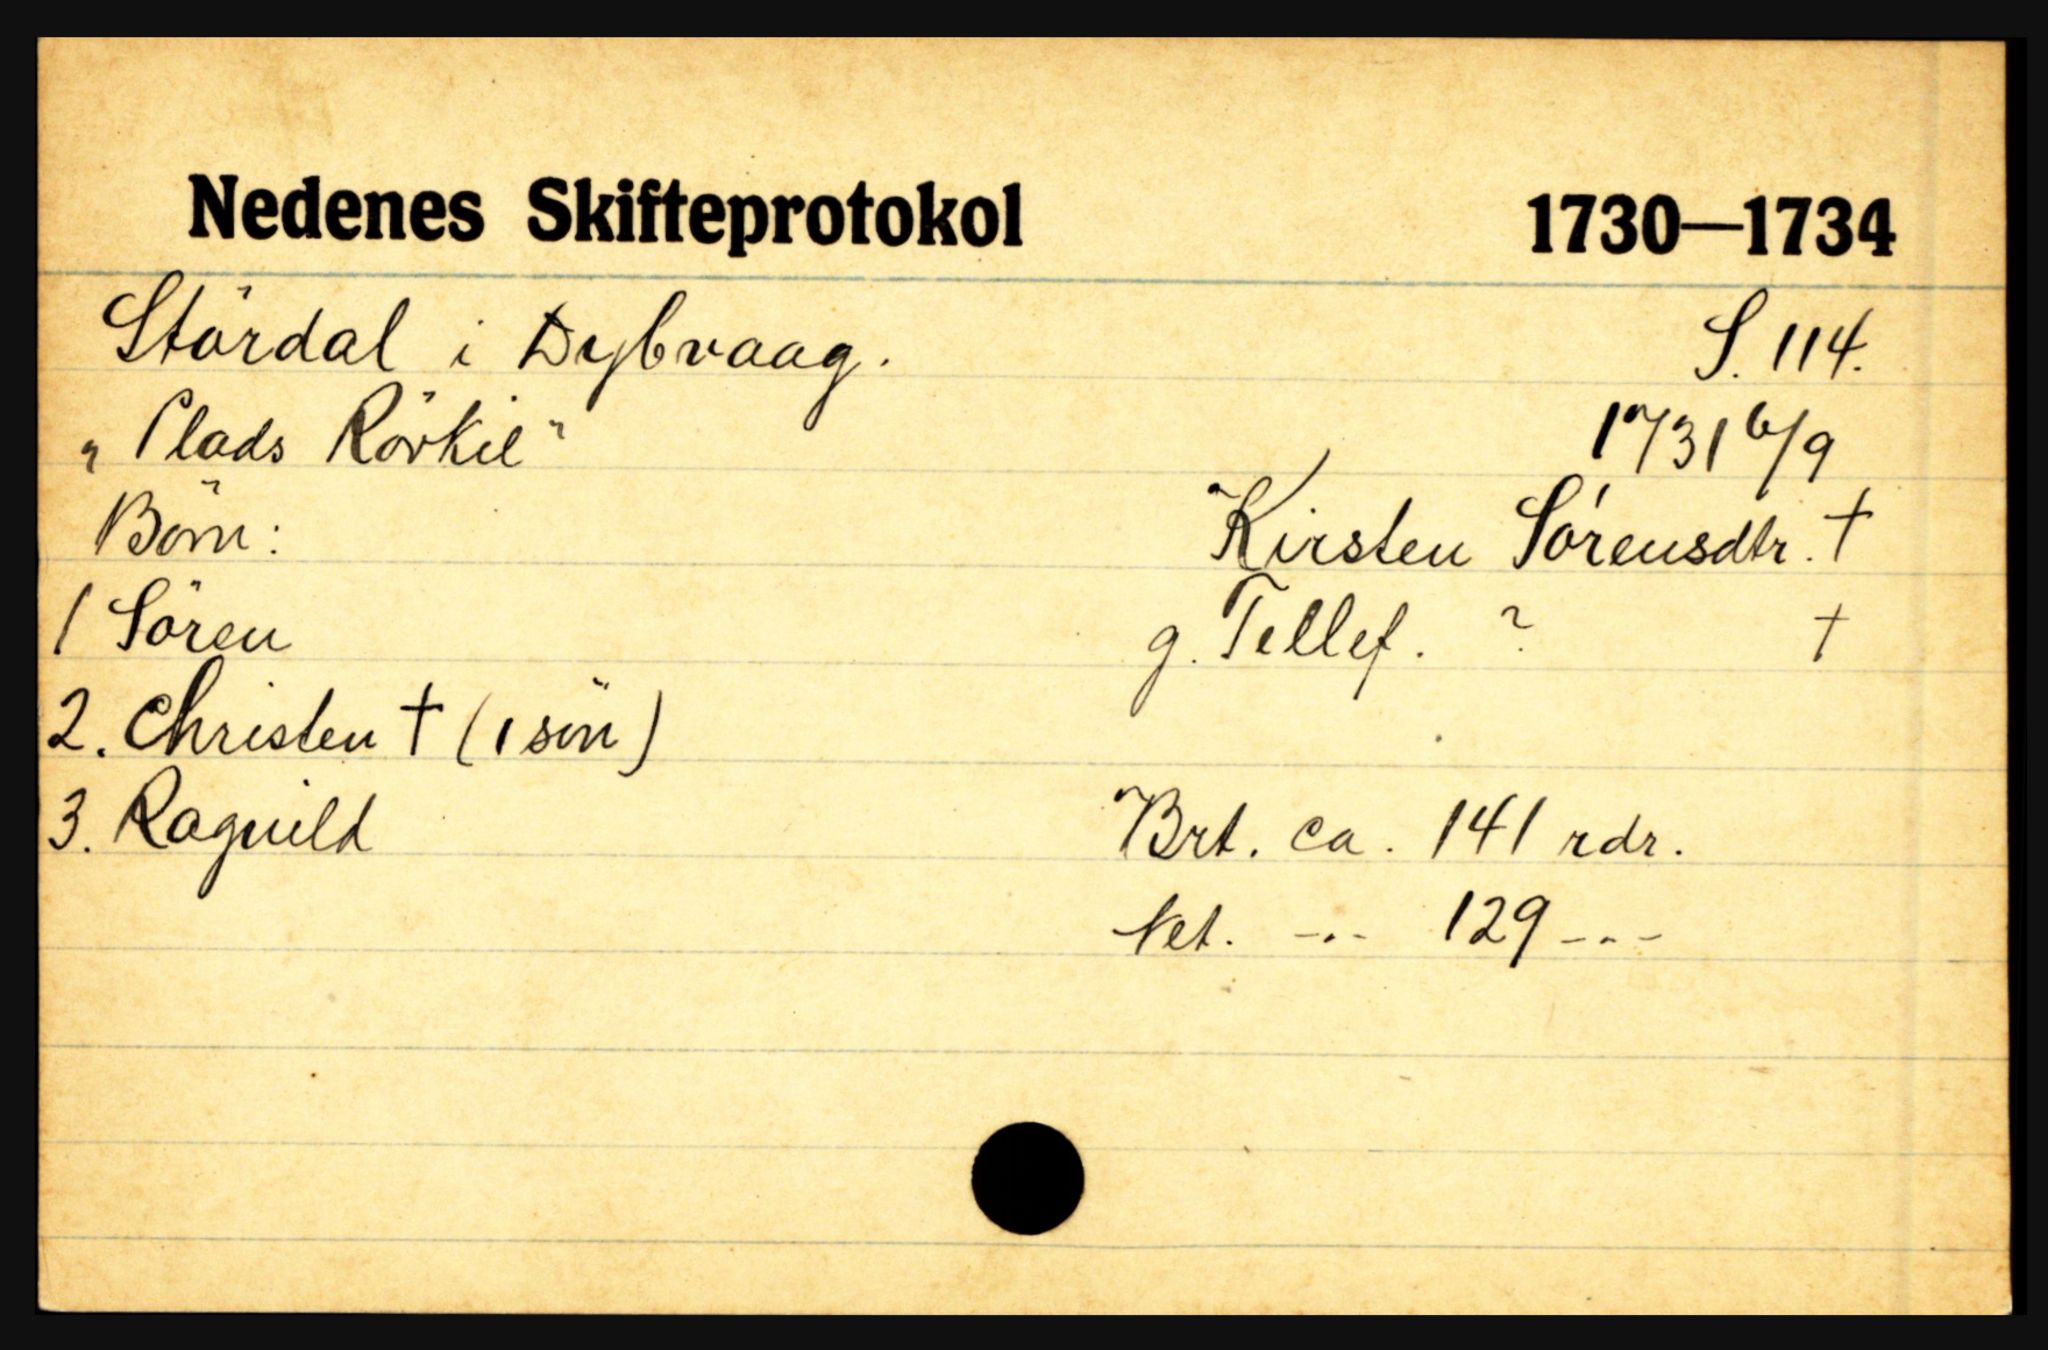 Nedenes Skifteprotokol 1730—1734
Stördal i Dybvaag. S. 114.
"Plads Rörkil" 1731 6/9
Börn: Kirsten Sörensdtr. †
1 Sören g. Tellef. ? †
2. Christen † (1 sön)
3. Raguild Brt. ca. 141 rdr.
Net. -"- 129 -"-